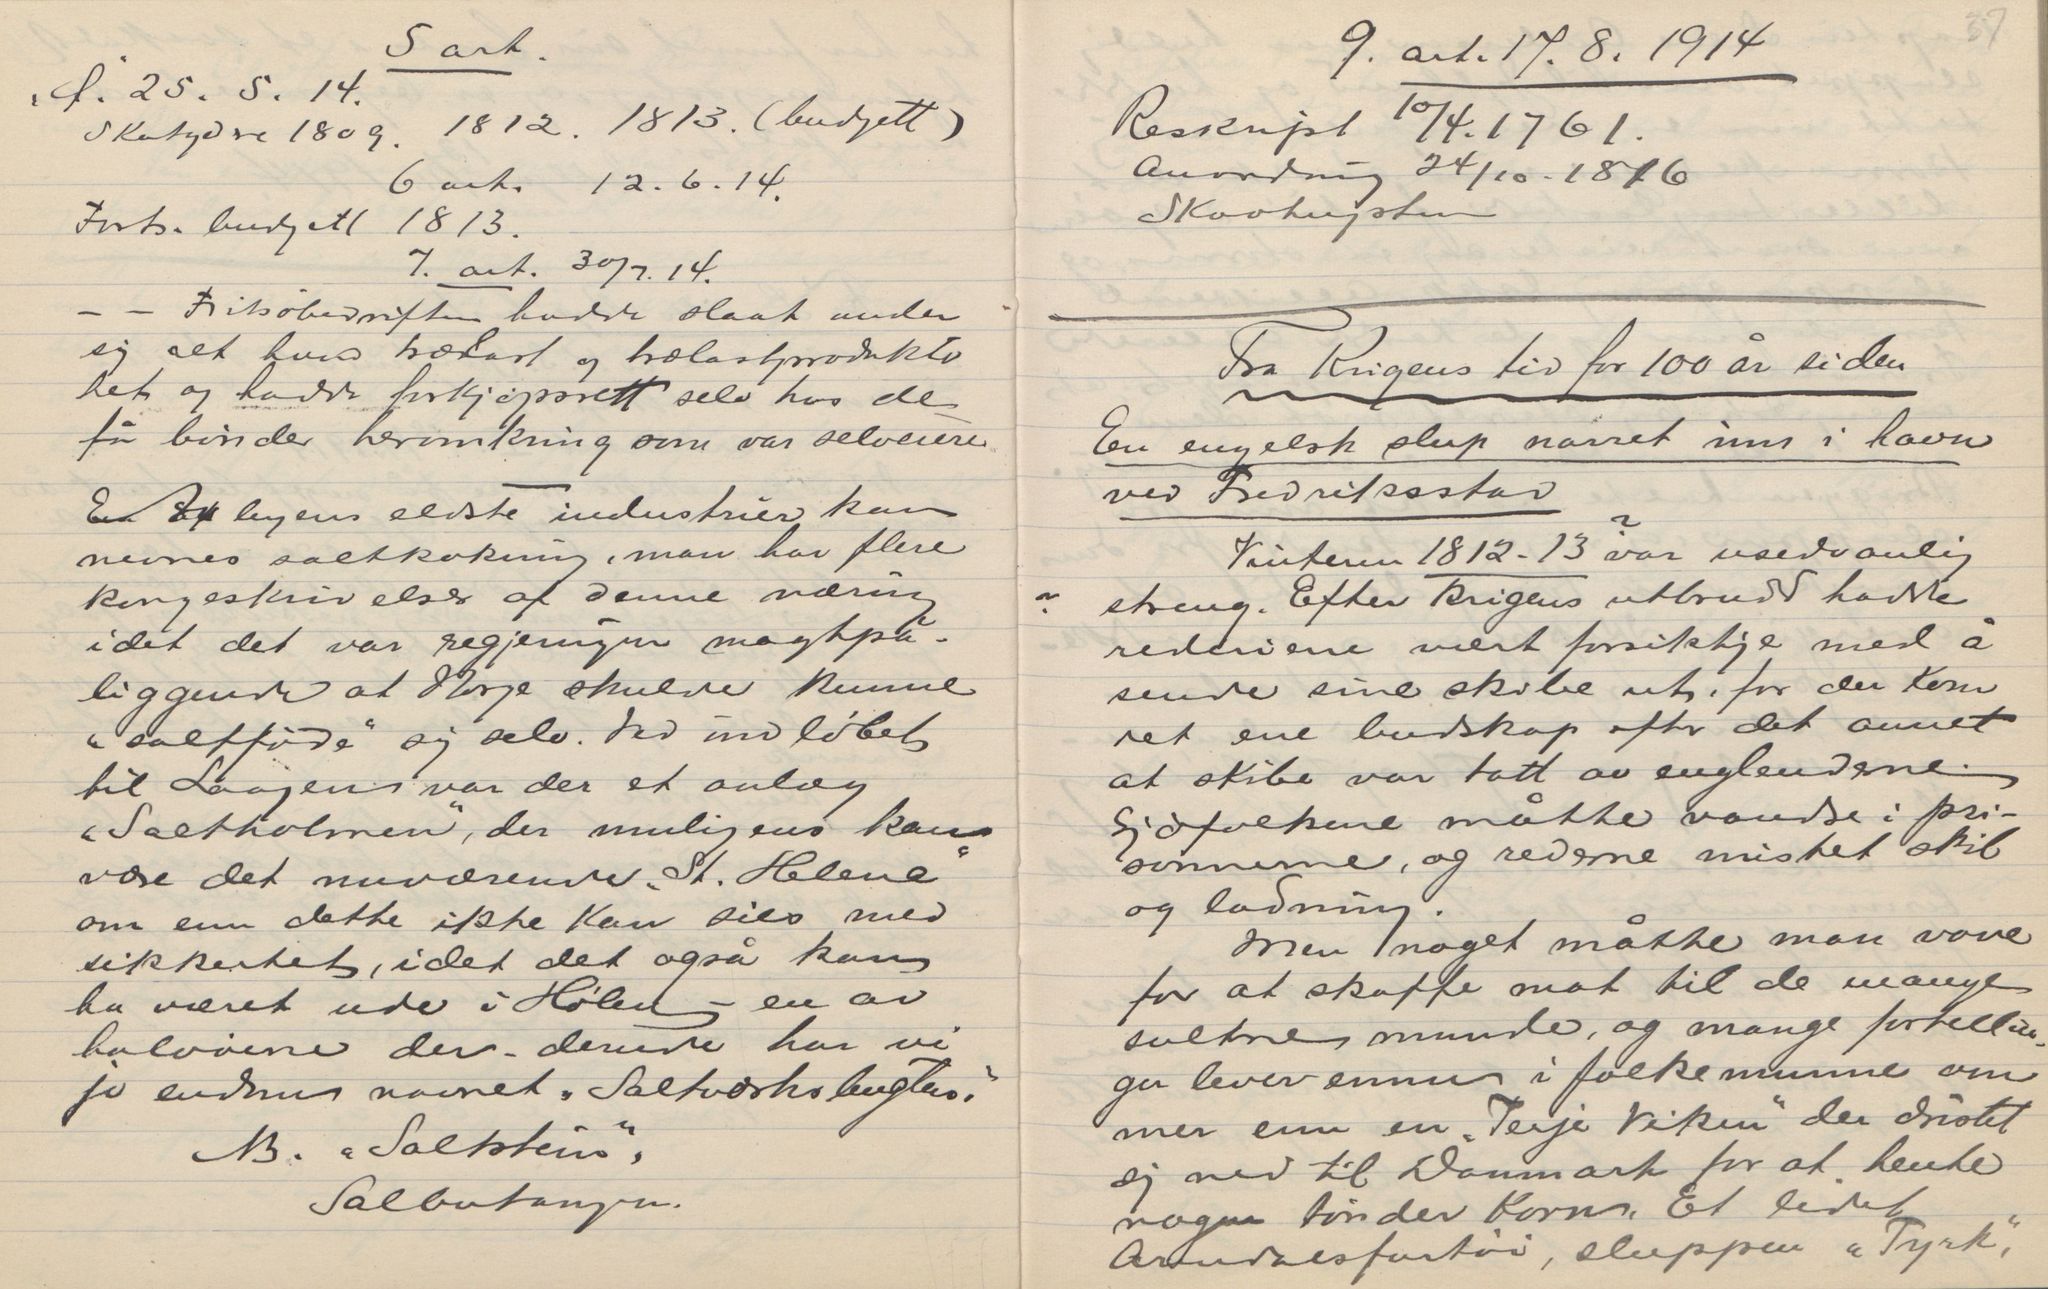 5 art.
f. 25. 5. 14.
Skatydere 1809. 1812. 1813. (budgett)
6 art. 12. 6. 14.
Forts. budgett 1813.
7. art. 30/7. 14.
– – Fritsöbedriften hadde slaat under
sig alt hvad trælast og trælastprodukto
het og hadde forkjøpsrett selv hos de
få bönder heromkring som var selveiere
En byens eldste industrier kan
nevnes saltkokning, man har flere
kongeskrivelser af denne næring
idet det var regjeringen magtpå-
liggende at Norge skulde kunne
"saltföde" sig selv. Ved indlöbet
til Laagen var der et anlæg
"Saltholmen", der muligens kan
være det nuværende "St. Helene"
om enn dette ikke kan sies med
sikkerhet, idet det også kan
ha været ude i Hölen – en av
halvöerne der – derude har vi
jo endnu navnet "Saltværksbugten."
NB. "Saltstein",
Salbutangen.
37
9. art. 17. 8. 1914
Reskript 10/4. 1761.
Anordning 24/10 - 1816
Skovhugsten
Fra Krigens tid for 100 år siden
En engelsk slup narret inn i havn
ved Fredriksstad
?
Vinteren 1812-13 var usedvanlig
? streng. Efter Krigens utbrudd hadde
rederiene vært forsiktige med å
sende sine skibe ut, for der kom
det ene budskap efter det annet
at skibe var tatt av englenderne.
Sjøfolkene måtte vandre i pri-
sonnerne, og rederne mistet skib
og ladning.
Men noget måtte man vove
for at skaffe mat til de mange
sultne munde, og mange fortellin-
ger lever ennu i folkemunne om
mer enn en "Terje Viken" der dristet
sig ned til Danmark for at hente
nogen tönder korn. Et lidet
Arendalsfartöi, sluppen "Tyrk",